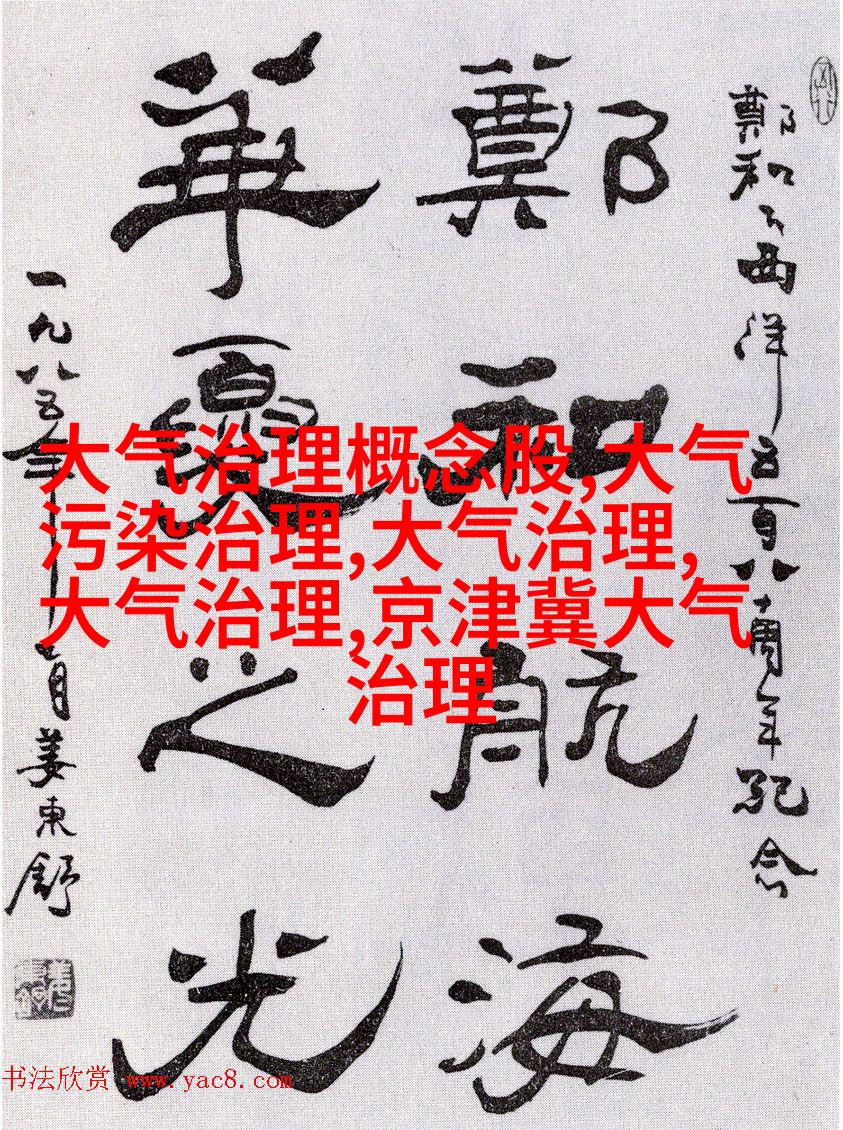 鄭和下西洋五百八十周年紀念
鄭和航海
華夏之光
一九八五年十一月姜東舒
大气治理概念股,大气
污染治理,大气治理,
大气治理,京津冀大气
治理
书法欣赏 www.yac8.com